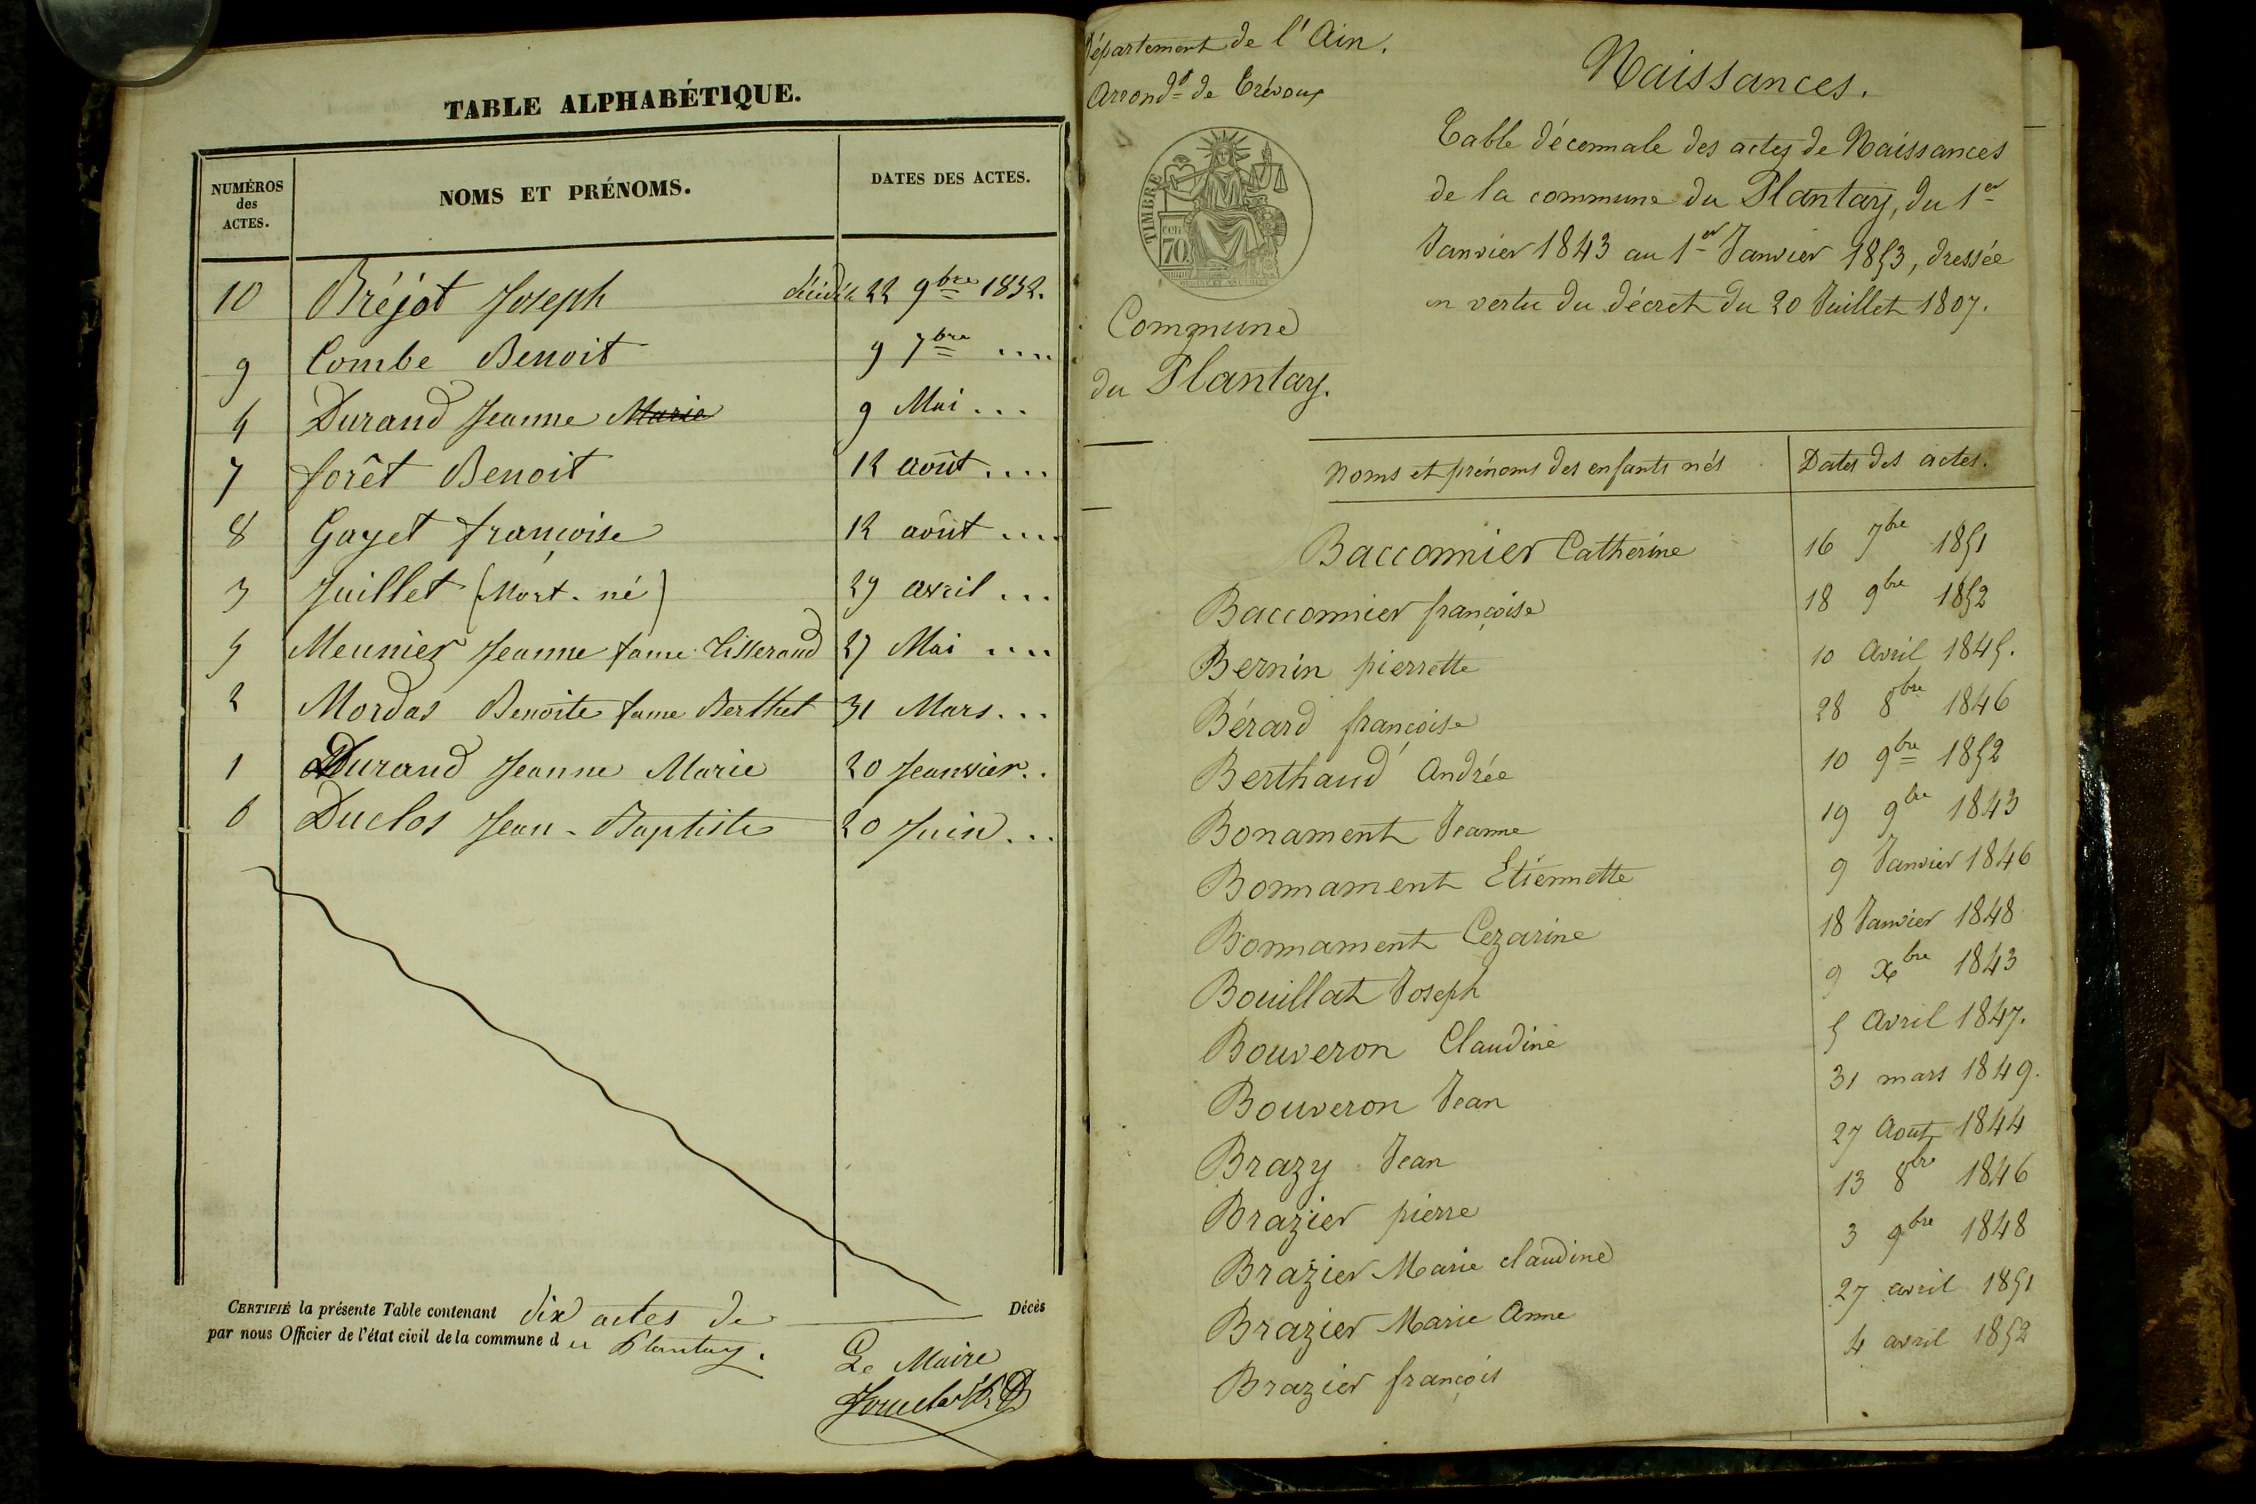 TABLE ALPHABÉTIQUE.
NUMÉROS des ACTES. NOMS ET PRÉNOMS. DATES DES ACTES.
10 Bréjot Joseph décédé 22 9bre 1852.
9 Combe Benoit 9 7bre ....
4 Durand Jeanne Marie 9 Mai ...
7 forêt Benoit 12 août ....
8 Gayet françoise 12 août ....
3 Juillet (Mort. né) 29 avril ...
5 Meunier Jeanne fame Tisserand 27 Mai ....
2 Mordas Benoite fame Berthet 31 Mars ...
1 Durand Jeanne Marie 20 Jeanvier ..
6 Duclos Jean-Baptiste 20 Juin ...
CERTIFIÉ la présente Table contenant dix actes de Décès
par nous Officier de l'état civil de la commune du Plantay.
Le Maire
Département de l'Ain.
Arrondt de Trévoux
TIMBRE
70
Commune
du Plantay.
Naissances.
Table décennale des actes de Naissances
de la commune du Plantay, du 1er
Janvier 1843 au 1er Janvier 1853, dressée
en vertu du décret du 20 Juillet 1807.
Noms et prénoms des enfants nés Dates des actes.
Bacconnier Catherine 16 7bre 1851
Bacconnier françoise 18 9bre 1852
Bernin pierrette 10 Avril 1845.
Bérard françoise 28 8bre 1846
Berthaud Andrée 10 9bre 1852
Bonament Jeanne 19 9bre 1843
Bonnament Etiennette 9 Janvier 1846
Bonnament Cezarine 18 Janvier 1848
Bouillat Joseph 9 Xbre 1843
Bouveron Claudine 5 Avril 1847.
Bouveron Jean 31 mars 1849.
Brazy Jean 27 Aout 1844
Brazier pierre 13 8bre 1846
Brazier Marie claudine 3 9bre 1848
Brazier Marie Anne 27 avril 1851
Brazier françois 4 avril 1852